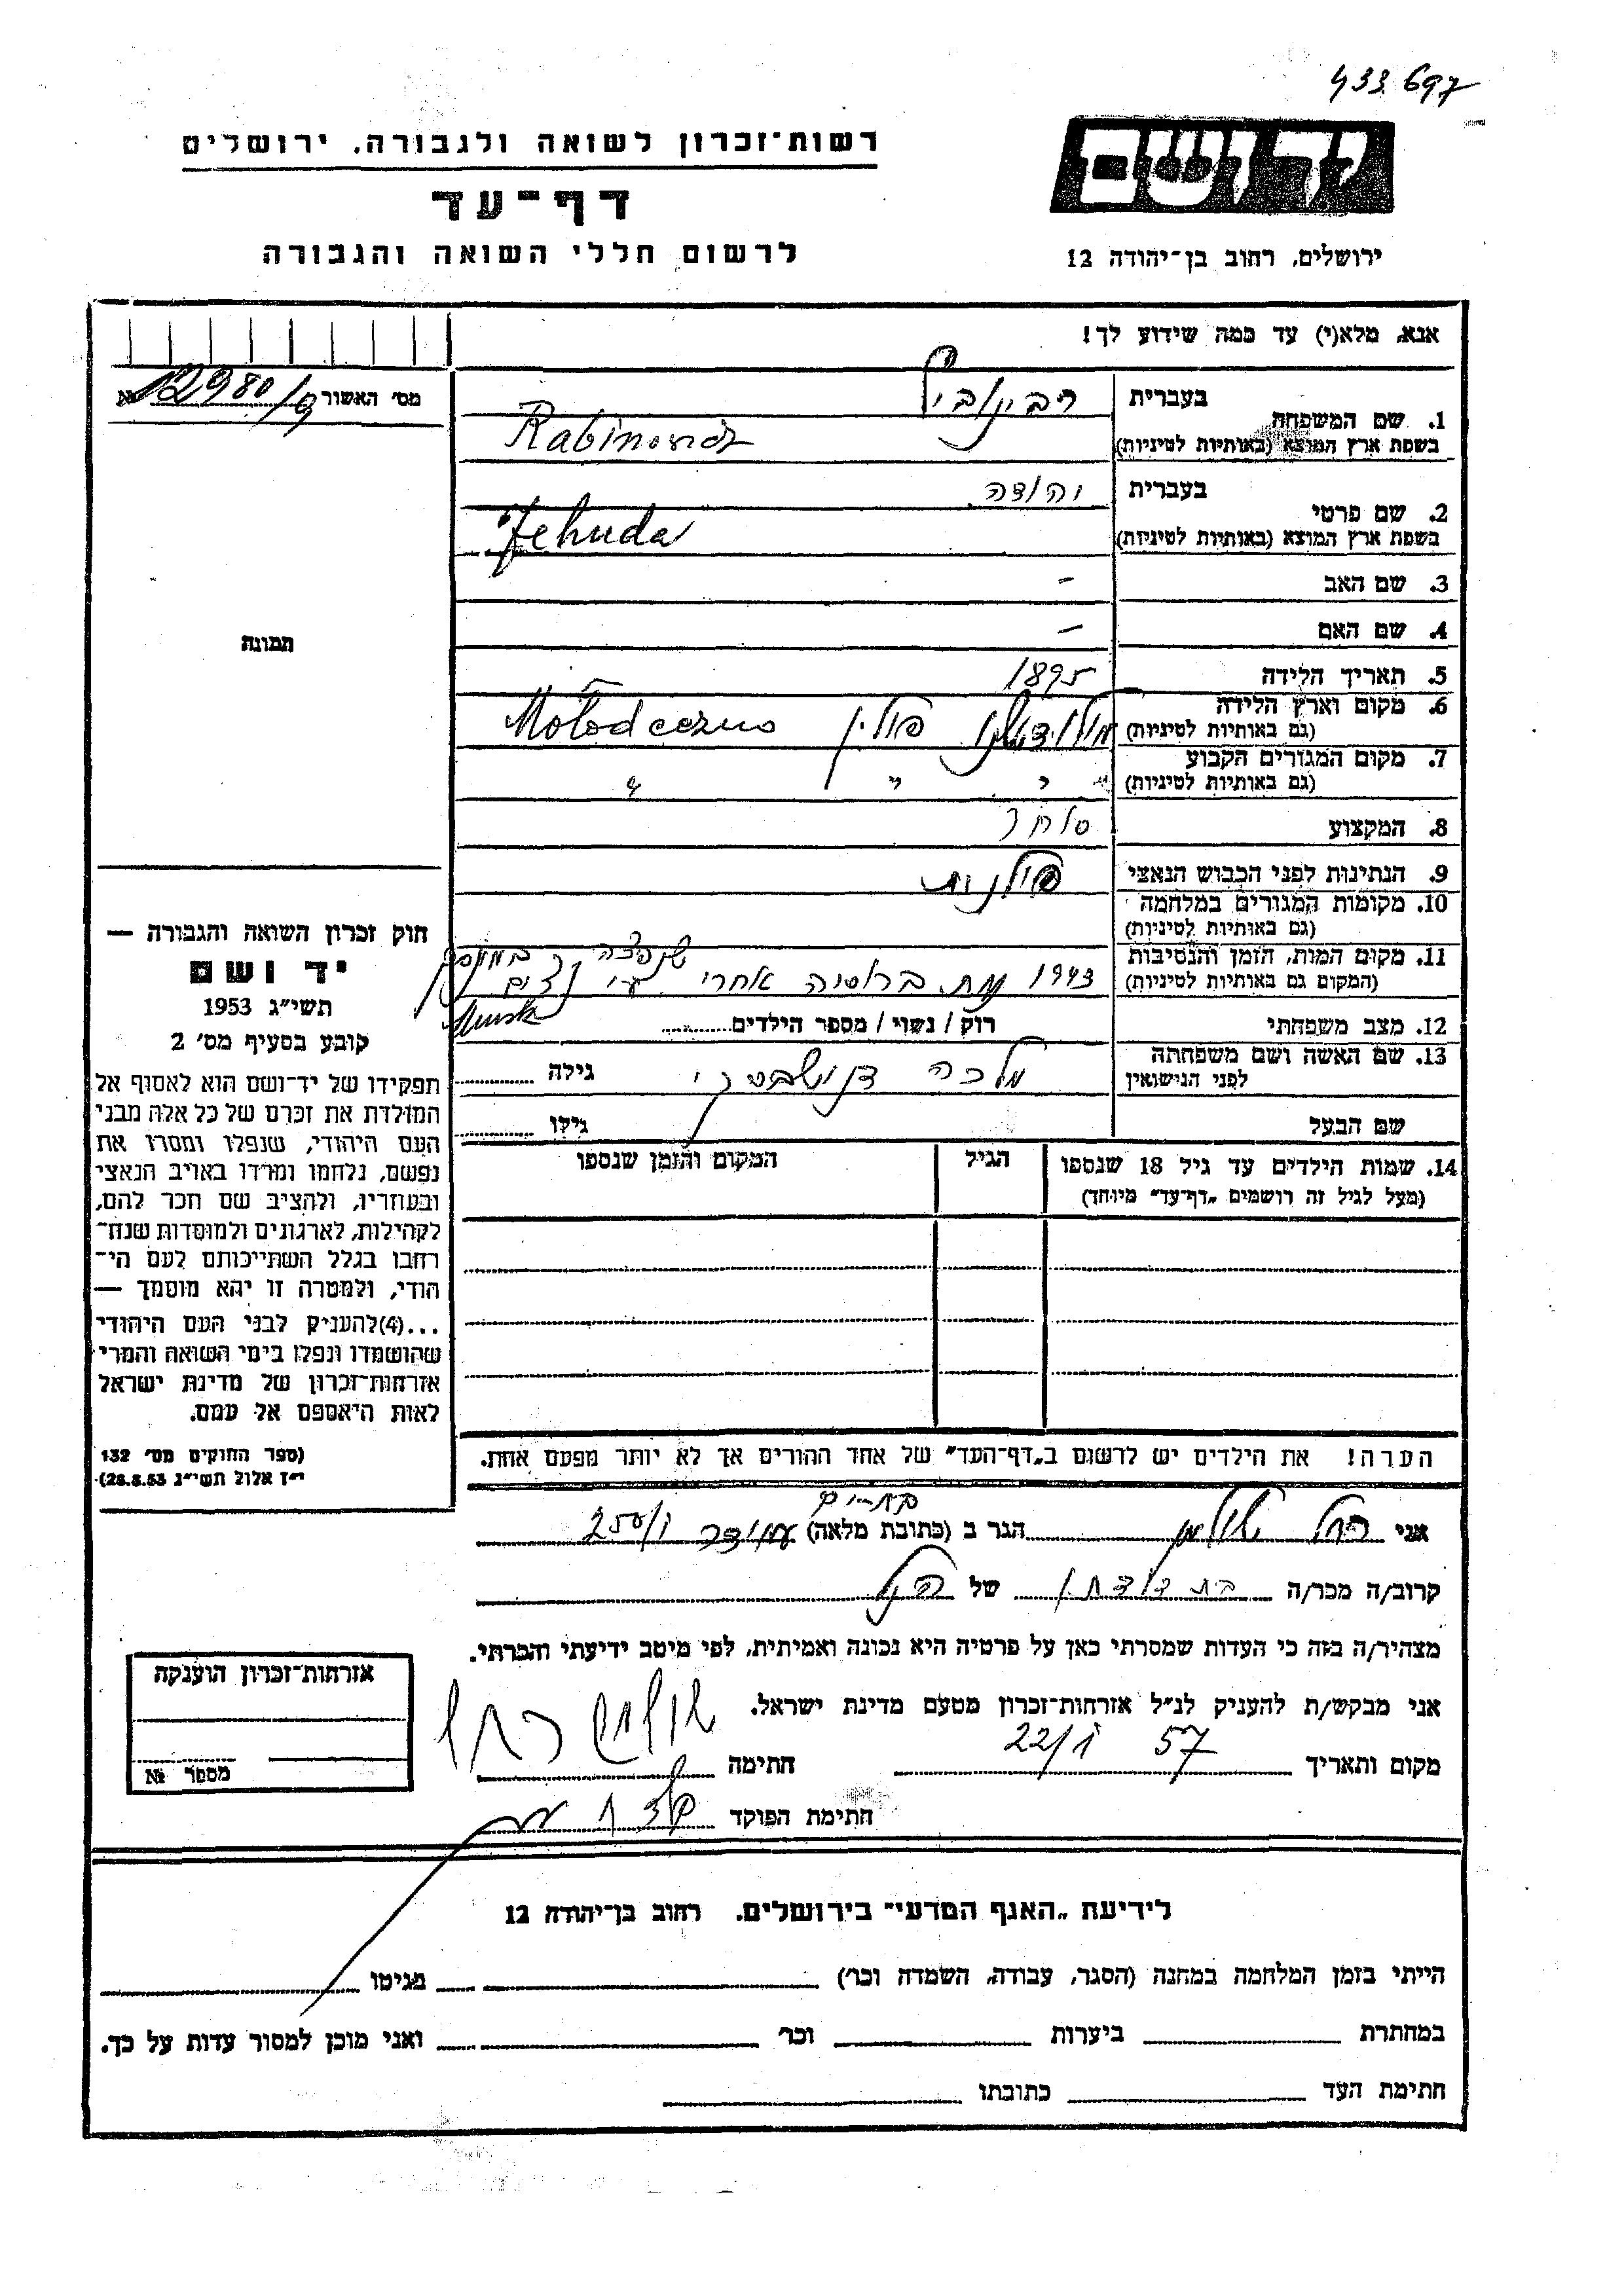 433697
רשות־זכרון לשואה ולגבורה, ירושלים
דף־עד
לרשום חללי השואה והגבורה
יד ושם
ירושלים, רחוב בן־יהודה 12
אנא, מלא(י) עד כמה שידוע לך!
מס׳ האשור № 12980/9
1. שם המשפחה
בעברית רבינוביץ
בשפת ארץ המוצא (באותיות לטיניות) Rabinovicz
2. שם פרטי
בעברית יהודה
בשפת ארץ המוצא (באותיות לטיניות) Jehuda
3. שם האב –
4. שם האם –
תמונה
5. תאריך הלידה 1895
6. מקום וארץ הלידה
(גם באותיות לטיניות) פולין Mołodeczno
7. מקום המגורים הקבוע
(גם באותיות לטיניות) " " "
8. המקצוע סוחר
9. הנתינות לפני הכבוש הנאצי פולנית
10. מקומות המגורים במלחמה
(גם באותיות לטיניות)
11. מקום המות, הזמן והנסיבות
(המקום גם באותיות לטיניות)
1943 מת ברוסיה אחרי
12. מצב משפחתי רוק / נשוי / מספר הילדים
13. שם האשה ושם משפחתה
לפני הנישואין מלכה גילה
שם הבעל גילו
14. שמות הילדים עד גיל 18 שנספו הגיל המקום והזמן שנספו
(מעל לגיל זה רושמים „דף־עד" מיוחד)
הערה! את הילדים יש לרשום ב„דף־העד" של אחד ההורים אך לא יותר מפעם אחת.
חוק זכרון השואה והגבורה —
יד ושם
תשי״ג 1953
קובע בסעיף מס׳ 2
תפקידו של יד־ושם הוא לאסוף אל
המולדת את זכרם של כל אלה מבני
העם היהודי, שנפלו ומסרו את
נפשם, נלחמו ומרדו באויב הנאצי
ובעוזריו, ולהציב שם וזכר להם,
לקהילות, לארגונים ולמוסדות שנח־
רחבו בגלל השתייכותם לעם הי־
הודי, ולמטרה זו יהא מוסמך —
...(4)להעניק לבני העם היהודי
שהושמדו ונפלו בימי השואה והמרי
אזרחות־זכרון של מדינת ישראל
לאות היאספם אל עמם.
(ספר החוקים מס׳ 132
י״ז אלול תשי״ג 28.8.53)
בת-ים
אני רחל שולמן הגר ב (כתובת מלאה) עמידר 250/1
קרוב/ה מכר/ה בת דודתו של הנ״ל
מצהיר/ה בזה כי העדות שמסרתי כאן על פרטיה היא נכונה ואמיתית, לפי מיטב ידיעתי והכרתי.
אני מבקש/ת להעניק לנ״ל אזרחות־זכרון מטעם מדינת ישראל.
מקום ותאריך 22/1 57 חתימה שולמן רחל
חתימת הפוקד
אזרחות־זכרון הוענקה
מספר №
לידיעת „האגף המדעי" בירושלים. רחוב בן־יהודה 12
הייתי בזמן המלחמה במחנה (הסגר, עבודה, השמדה וכר׳) בגיטו
במחתרת ביערות וכר׳ ואני מוכן למסור עדות על כך.
חתימת העד כתובתו